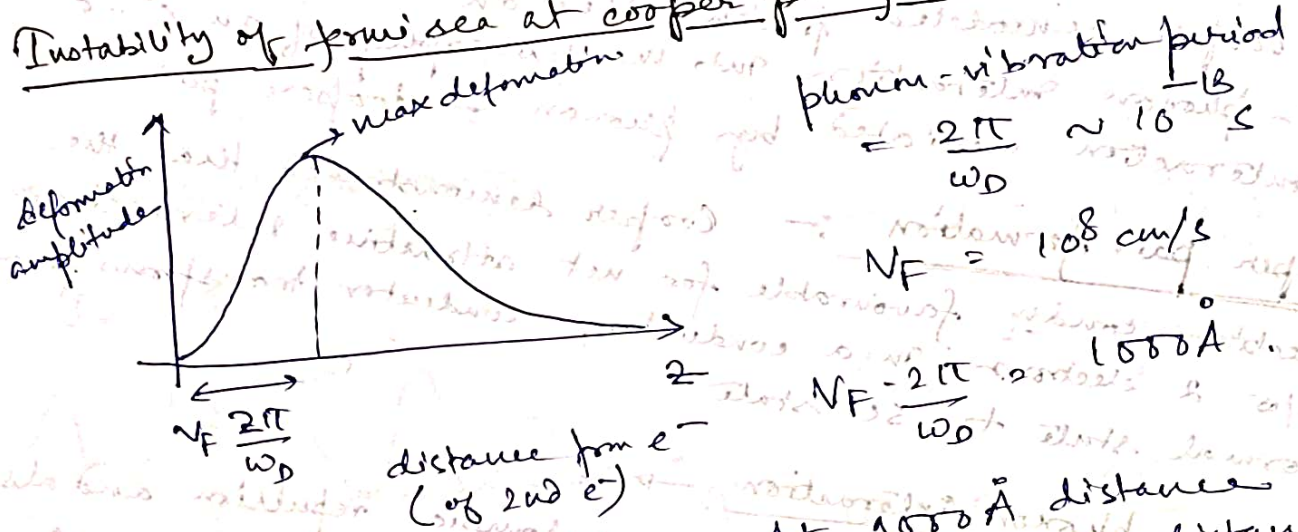 Instability of fermi sea at cooper
max deformation
deformatn
amplitude
v_F 2π/ω_D
z
distance from e⁻
(of 2nd e⁻)
phonon-vibration period
= 2π/ω_D ~ 10^-13 s
v_F = 10^8 cm/s
v_F · 2π/ω_D = 1000 Å.
At 1000 Å distance